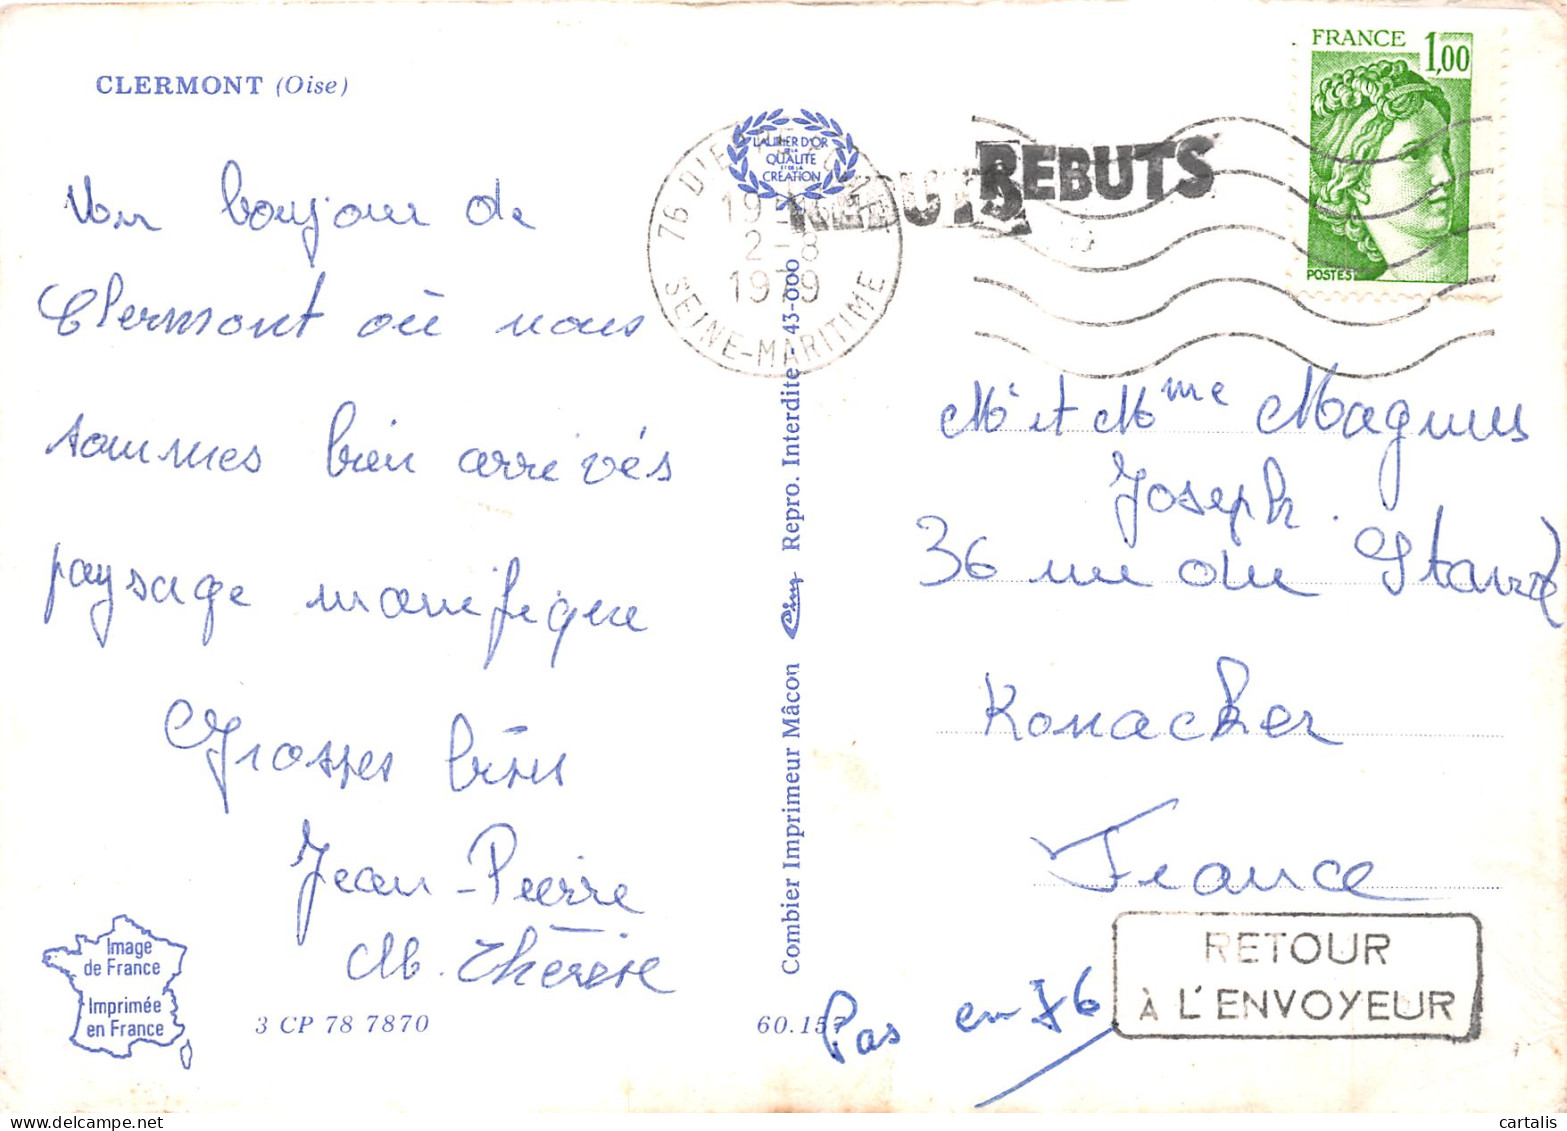 CLERMONT (Oise)
Un bonjour de
Clermont où nous
sommes bien arrivés
paysage manifique
Grosses bises
Jean-Pierre
M. Thérèse
Image
de France
Imprimée
en France
3 CP 78 7870
60.157
Combier Imprimeur Mâcon Cim Repro. Interdite - 43-000
LAURIER D'OR
DE LA
QUALITÉ
ET DE LA
CRÉATION
76 D'
19
2-8
1979
SEINE-MARITIME
REBUTS
REBUTS
FRANCE 1,00
POSTES
Mr et Mme Magnus
Joseph.
36 rue du Stand
Konacker
France
RETOUR
À L'ENVOYEUR
Pas en 76
cartalis